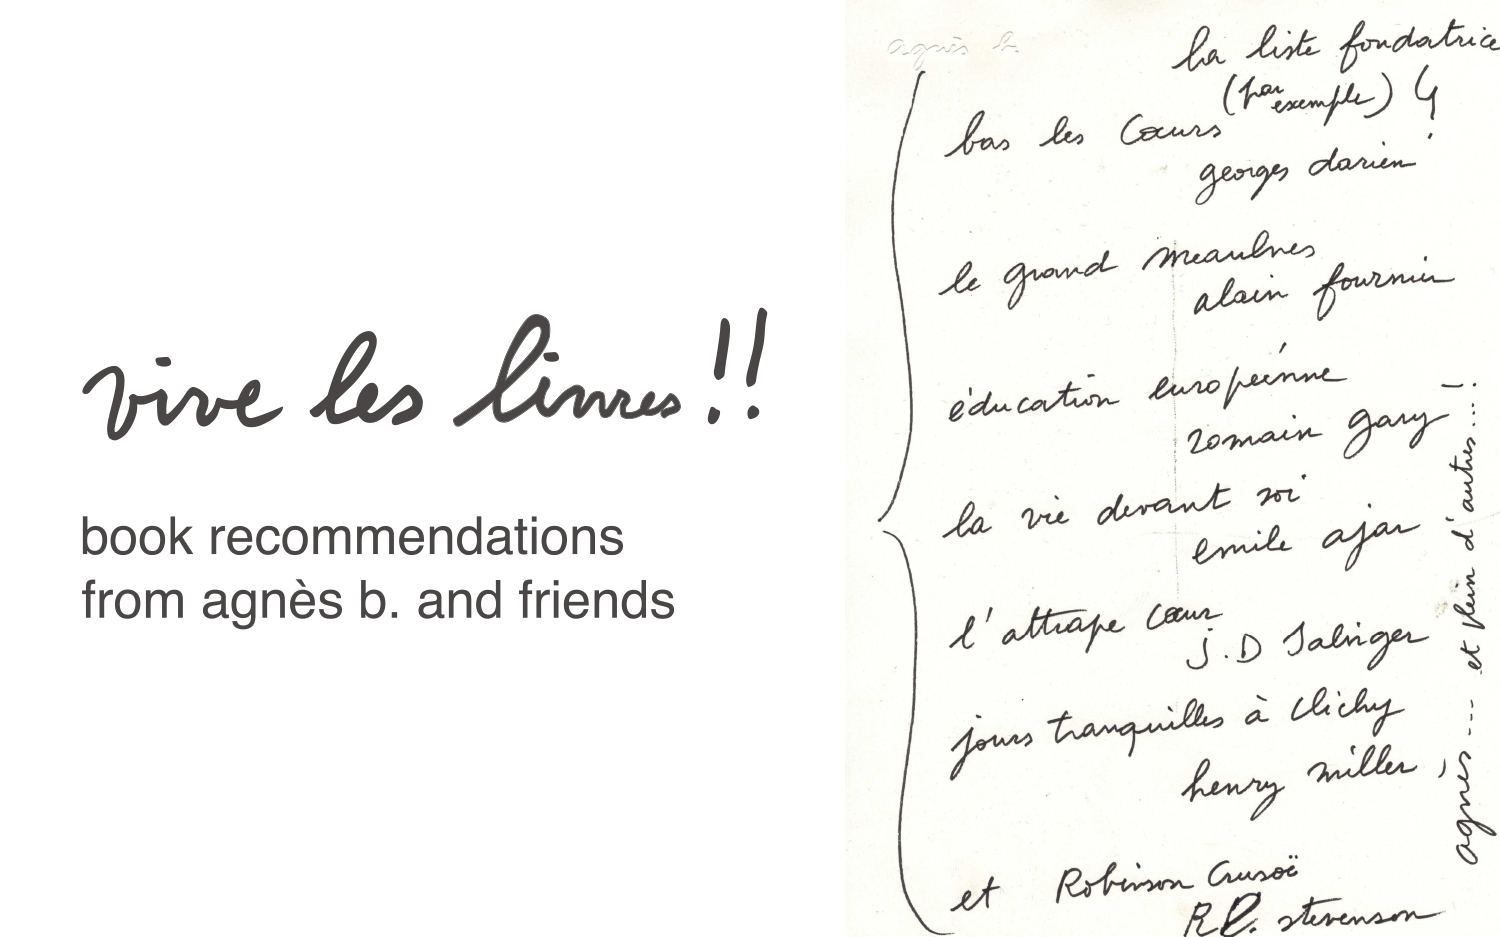 vive les livres !!
book recommendations
from agnès b. and friends
agnès b.
la liste fondatrice
(par exemple)
bas les Cœurs
georges darien
le grand meaulnes
alain fournier
éducation européenne
romain gary
la vie devant soi
emile ajar
l'attrape cœur
j.D Salinger
jours tranquilles à Clichy
henry miller,
et Robinson Crusoë
R L. stevenson
agnès --- et plein d'autres...!